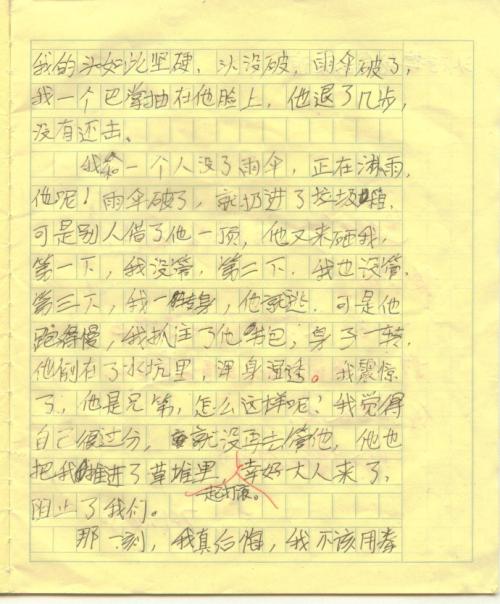 我的头如此坚硬，头没破，雨伞破了，
我一个巴掌抽在他脸上，他退了几步，
没有还击。
我一个人没了雨伞，正在淋雨，
他呢！雨伞破了，就扔进了垃圾箱，
可是别人借了他一顶，他又来砸我，
第一下，我没管，第二下，我也没管，
第三下，我一转身，他就逃，可是他
跑得慢，我抓住了他书包，身子一转，
他倒在了水坑里，浑身湿透。我震惊
了，他是兄弟，怎么这样呢？我觉得
自己很过分，就没再去管他，他也
把我推进了草堆里，幸好大人来了，
起打滚。
阻止了我们。
那一刻，我真后悔，我不该用拳